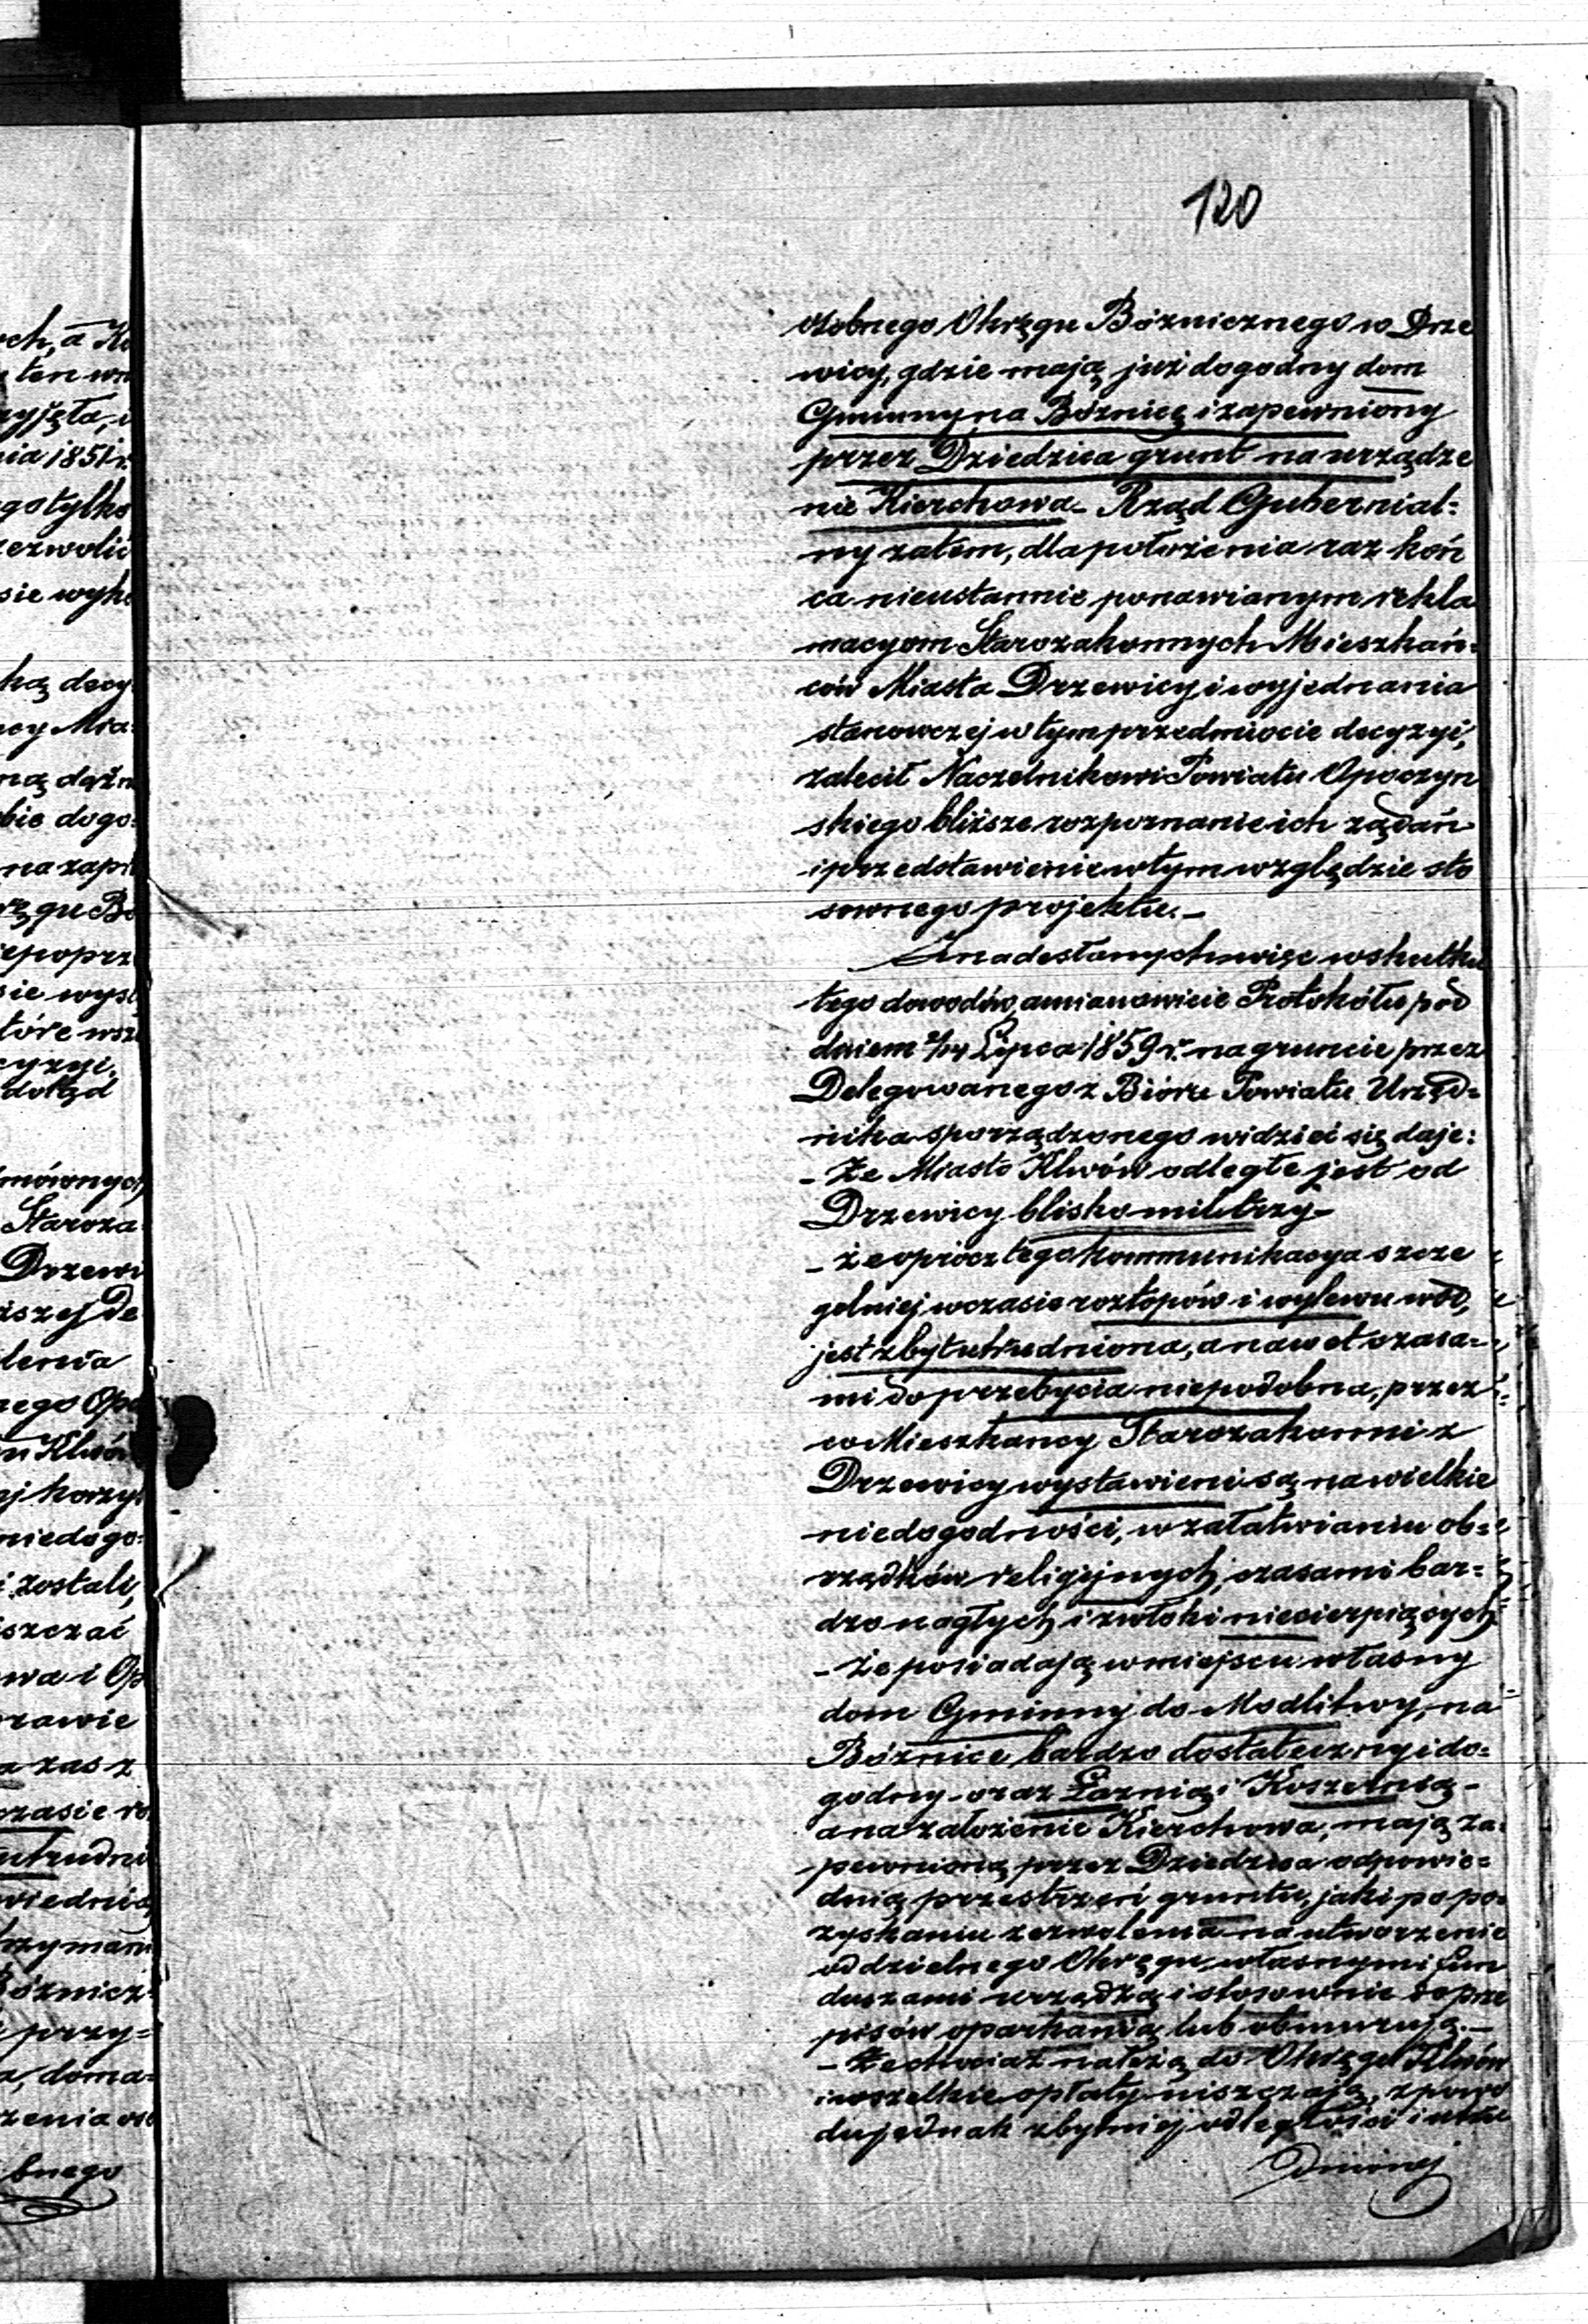 120
osobnego Okręgu Bóżnicznego w Drze
wicy, gdzie mają już dogodny dom
Gminny na Bóżnicę i zapewniony
przez Dziedzica grunt na urządze
nie Kierchowa – Rząd Gubernial=
ny zatem, dla położenia raz koń
ca nieustannie ponawianym rekla
macyom Starozakonnych Mieszkań=
ców Miasta Drzewicy i wyjednania
stanowczej w tym przedmiocie decyzyi,
zalecił Naczelnikowi Powiatu Opoczyn
skiego bliższe rozpoznanie ich żądań
i przedstawienie w tym względzie sto
sownego projektu. –
Z nadesłanych więc w skutku
tego dowodów, a mianowicie Protokółu pod
dniem 2/14 Lipca 1859 r. na gruncie przez
Delegowanego z Bióra Powiatu Urzęd=
nika sporządzonego widzieć się daje:
– Że Miasto Klwów odległe jest od
Drzewicy blisko mil trzy –
– że oprócz tego kommunikacya szcze
gólniej w czasie roztopów i wylewu wód,
jest zbyt utrudniona, a nawet czasa=
mi do przebycia niepodobna, przez
co Mieszkancy Starozakonni z
Drzewicy wystawieni są na wielkie
niedogodności, w załatwianiu ob=
rządków religijnych, czasami bar=
dzo nagłych i zwłoki niecierpiących
– Że posiadają w miejscu własny
dom Gminny do Modlitwy, na
Bóżnice bardzo dostateczny i do=
godny – oraz Łaźnią i Koszernią –
a na założenie Kierchowa, mają za=
pewnioną przez Dziedzica odpowie=
dnią przestrzeń gruntu, jaki po po=
zyskaniu zezwolenia na utworzenie
oddzielnego Okręgu, własnymi fun
duszami urządzą i stosownie do prze
pisów oparkanią lub obmurują. –
– Że chociaż należą do Okręgu Klwów
i wszelkie opłaty uiszczają, z powo
du jednak zbytniej odległości i utru
dnionej